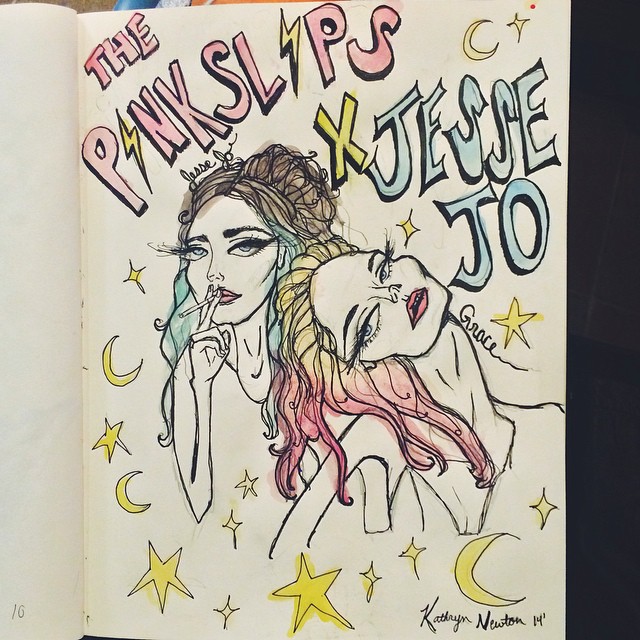 THE
PINK SLIPS
X JESSE
JO
Jesse Jo
Grace
Kathryn Newton 14'
16